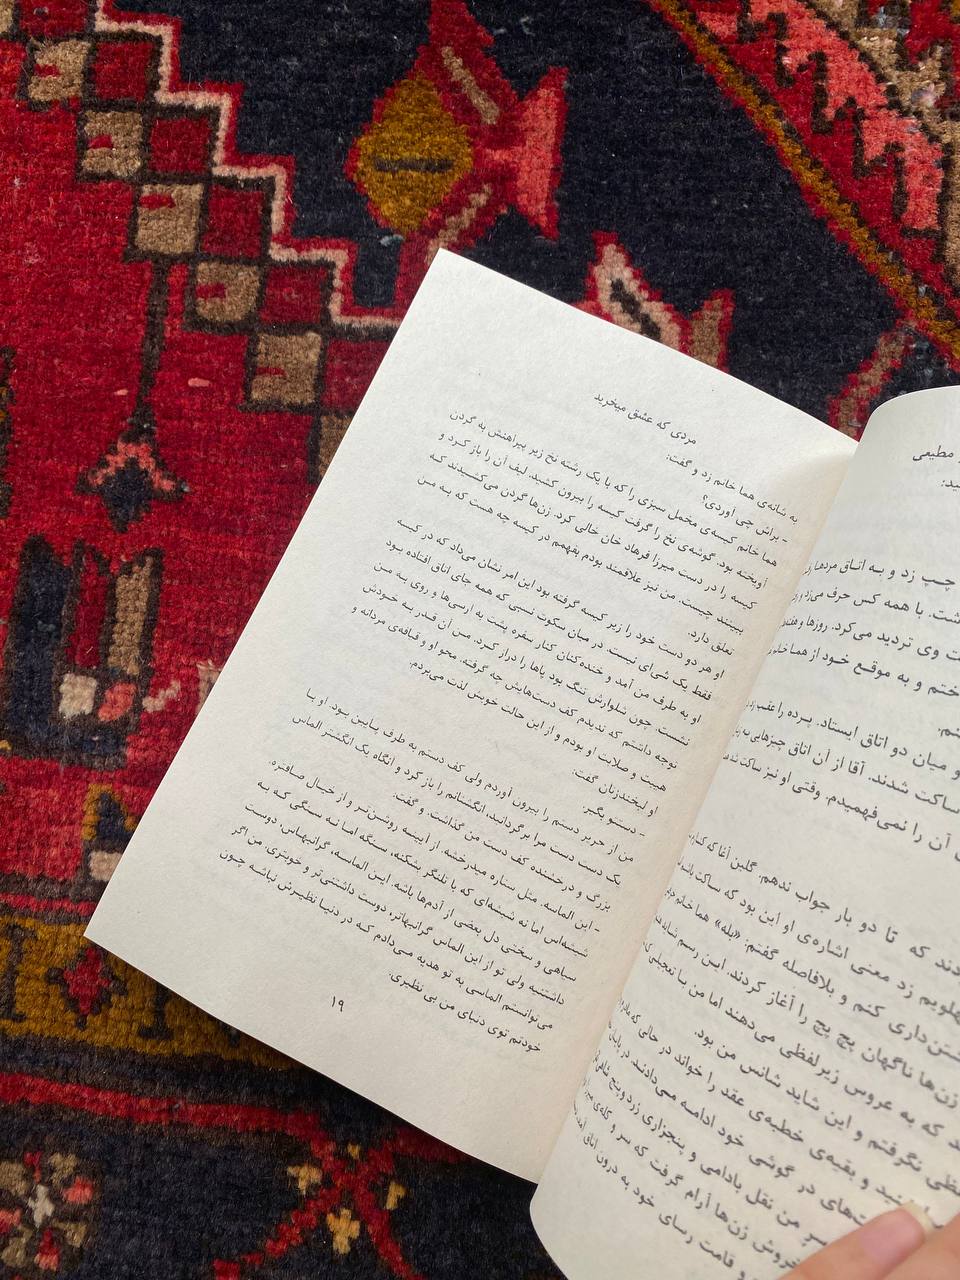 مردی که عشق میخرید
به شانه‌ی هما خانم زد و گفت:
- براش چی اوردی؟
هما خانم کیسه‌ی مخمل سبزی را که با یک رشته نخ زیر پیراهنش به گردن
آویخته بود. گوشه‌ی نخ را گرفت کیسه را بیرون کشید. لیف آن را باز کرد و
کیسه را در دست میرزا فرهاد خان خالی کرد. زن‌ها گردن می‌کشیدند که
ببینند چیست. من نیز علاقمند بودم بفهمم در کیسه چه هست که به من
تعلق دارد.
او هر دو دست خود را زیر کیسه گرفته بود این امر نشان می‌داد که در کیسه
فقط یک شی‌ای نیست. در میان سکوت نسبی که همه جای اتاق افتاده بود
او به طرف من آمد و خنده‌کنان کنار سفره پشت به ارسی‌ها و روی به من
نشست. چون شلوارش تنگ بود پاها را دراز کرد. من آن قدر به خودش
توجه داشتم که ندیدم کف دست‌هایش چه گرفته. محو او و قیافه‌ی مردانه و
هیبت و صلابت او بودم و از این حالت خویش لذت می‌بردم.
او لبخندزنان گفت:
- دستتو بگیر.
من از حریر دستم را بیرون آوردم ولی کف دستم به طرف پایین بود. او با
یک دست دست مرا برگردانید، انگشتانم را باز کرد و آنگاه یک انگشتر الماس
بزرگ و درخشنده کف دست من گذاشت. و گفت:
- این الماسه. مثل ستاره میدرخشه. از آیینه روشن‌تر و از خیال صافتره.
شیشه‌اس اما نه شیشه‌ای که با تلنگر بشکنه، سنگه اما نه سنگی که به
سیاهی و سختی دل بعضی از آدم‌ها باشه. این الماسه، گرانبهاس، دوست
داشتنیه ولی تو از این الماس گرانبهاتر، دوست داشتنی‌تر و خوبتری. من اگر
می‌توانستم الماسی به تو هدیه می‌دادم که در دنیا نظیرش نباشه چون
خودتم توی دنیای من بی نظیری.
۱۹
مطیعی
چپ زد و به اتاق مردها
شت. با همه کس حرف می‌زد و
ت وی تردید می‌کرد. روزها و هفته‌ها
ختم و به موقع خود از هما خانم
نتم.
و میان دو اتاق ایستاد. پرده را عقب زد
ساکت شدند. آقا از آن اتاق چیزهایی به
آن را نمی‌فهمیدم. وقتی او نیز ساکت شد
دند که تا دو بار جواب ندهم. گلین آغا که کنار
هلویم زد معنی اشاره‌ی او این بود که ساکت باشم
شتن‌داری کنم و بلافاصله گفتم: «بله» هما خانم
زن‌ها ناگهان پچ پچ را آغاز کردند. این رسم شاید
د که به عروس زیرلفظی می‌دهند اما من با تعجیلی که
فظی نگرفتم و این شاید شانس من بود.
و بقیه‌ی خطبه‌ی عقد را خواند در حالی که
ت‌های در گوشی خود ادامه می‌دادند. در پایان
من نقل بادامی و پنجزاری زرد و پنج شاهی
خروش زن‌ها آرام گرفت که سر و کله‌ی
و قامت رسای خود به درون اتاق آمد